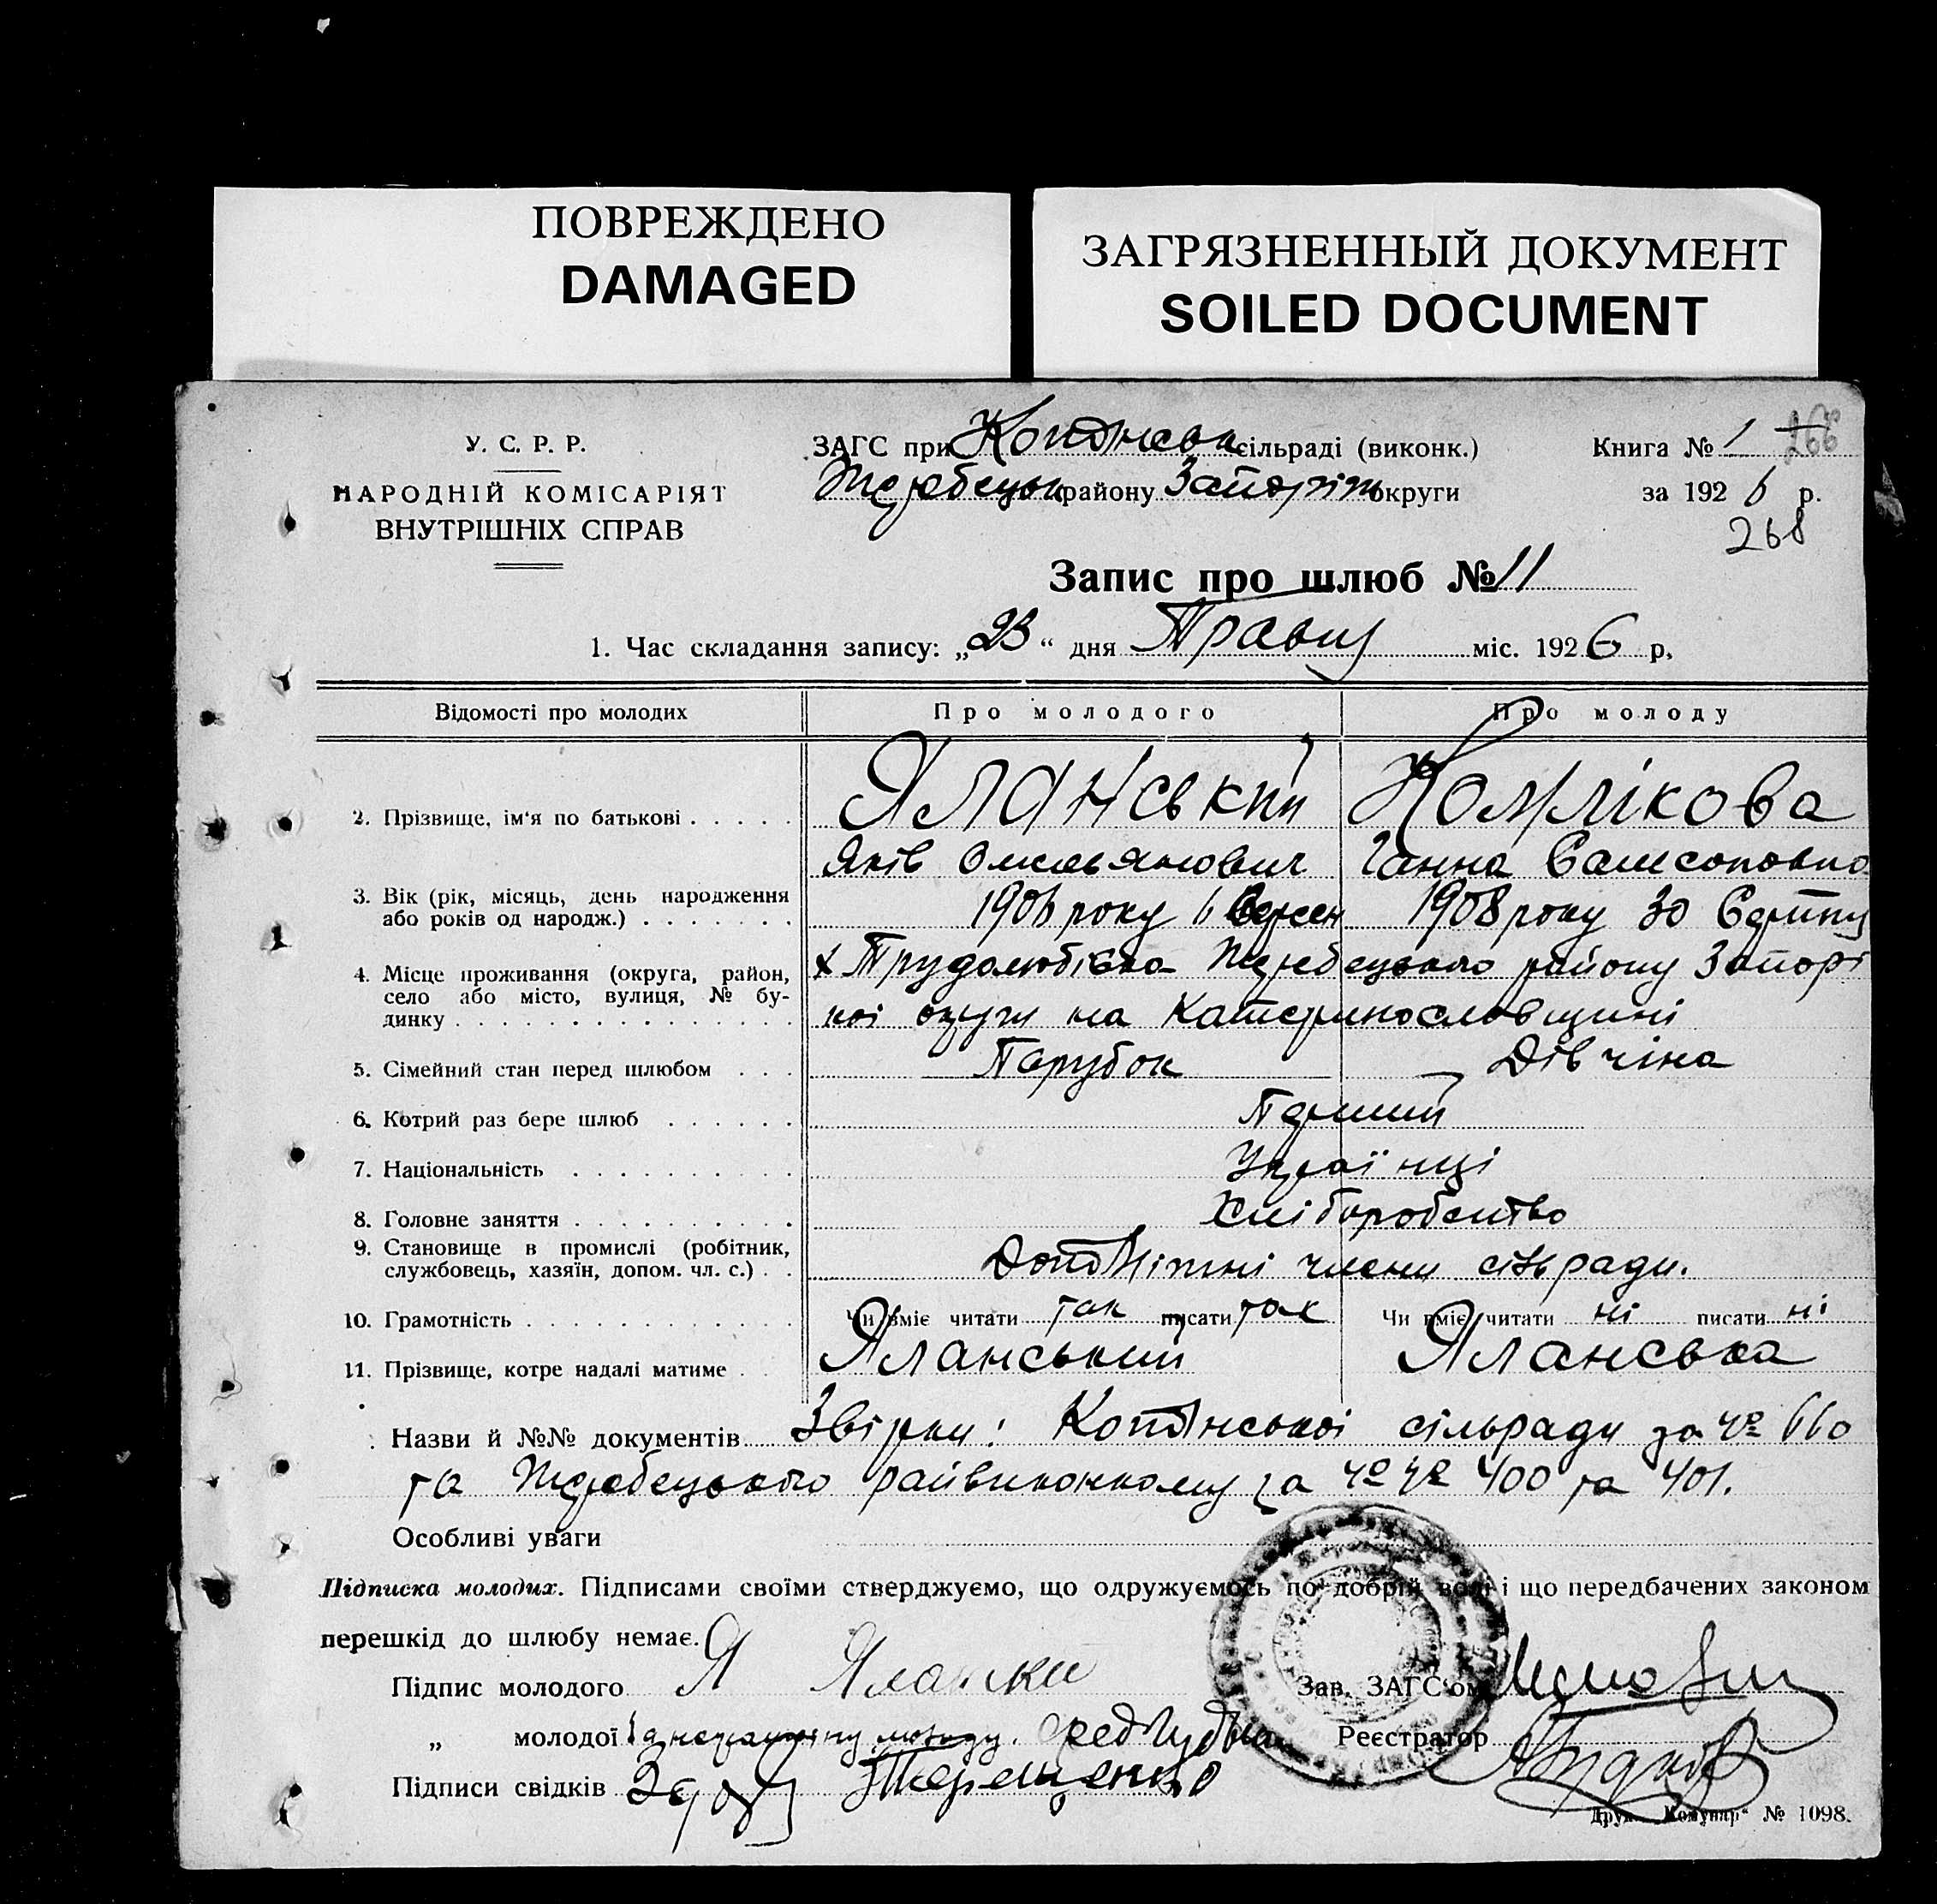 ПОВРЕЖДЕНО
DAMAGED
ЗАГРЯЗНЕННЫЙ ДОКУМЕНТ
SOILED DOCUMENT
У. С. Р. Р.
НАРОДНІЙ КОМІСАРІЯТ
ВНУТРІШНІХ СПРАВ
ЗАГС при сільраді (виконк.)
Жеребецьк району Запоріж округи
Книга № 1 266
за 192 6 р.
268
Запис про шлюб № 11
1. Час складання запису: „23“ дня Травня міс. 1926 р,
Відомості про молодих Про молодого Про молоду
2. Прізвище, ім'я по батькові . . . . . Яланський
Яків Омельянович Ганна Самсоновна
3. Вік (рік, місяць, день народження
або років од народж.) . . . . . . . 1906 року 6 Версен 1908 року 30 Серпня
4. Місце проживання (округа, район,
село або місто, вулиця, № бу-
динку . . . . . . . . . . . . . . . .
х Трудолюбівка Жеребецького району Запорі
кої округи на Катеринославщині
5. Сімейний стан перед шлюбом . . . Парубок Дівчіна
6. Котрий раз бере шлюб . . . . . . Перший
7. Національність . . . . . . . . . . Українці
8. Головне заняття . . . . . . . . . . Хліборобство
9. Становище в промислі (робітник,
службовець, хазяїн, допом. чл. с.) . . члени
10. Грамотність . . . . . . . . . . . . Чи вміє читати так писати так Чи вміє читати ні писати ні
11. Прізвище, котре надалі матиме . . Яланський Яланська
Назви й №№ документів Звірки: сільради за № 660
та Жеребецького райвиконкому за №№ 400 та 401.
Особливі уваги
Підписка молодих. Підписами своїми стверджуємо, що одружуємось по добрій волі і що передбачених законом
перешкід до шлюбу немає.
Підпис молодого Я
Зав. ЗАГС'ом
„ молодої За неграмотну молоду.
Реєстратор
Підписи свідків Терещенко
Друк. „Комунар“ № 1098.